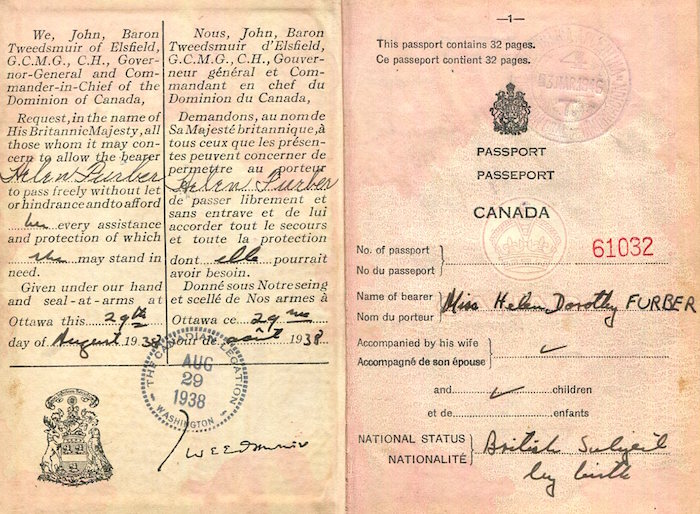 We, John, Baron
Tweedsmuir of Elsfield,
G.C.M.G., C.H., Gover-
nor-General and Com-
mander-in-Chief of the
Dominion of Canada,
Request, in the name of
His Britannic Majesty, all
those whom it may con-
cern to allow the bearer
Helen Furber
to pass freely without let
or hindrance and to afford
her every assistance
and protection of which
she may stand in
need.
Given under our hand
and seal-at-arms at
Ottawa this 29th
day of August 1938
Nous, John, Baron
Tweedsmuir d'Elsfield,
G.C.M.G., C.H., Gouver-
neur général et Com-
mandant en chef du
Dominion du Canada,
Demandons, au nom de
Sa Majesté britannique, à
tous ceux que les présen-
tes peuvent concerner de
permettre au porteur
Helen Furber
de passer librement et
sans entrave et de lui
accorder tout le secours
et toute la protection
dont elle pourrait
avoir besoin.
Donné sous Notre seing
et scellé de Nos armes à
Ottawa ce 29
jour de août 1938
THE CANADIAN LEGATION
AUG
29
1938
WASHINGTON
Tweedsmuir
—1—
This passport contains 32 pages.
Ce passeport contient 32 pages.
PASSPORT
PASSEPORT
CANADA
No. of passport
No du passeport
61032
Name of bearer
Nom du porteur
Miss Helen Dorothy FURBER
Accompanied by his wife
Accompagné de son épouse
and children
et de enfants
NATIONAL STATUS
NATIONALITÉ
British Subject
by birth